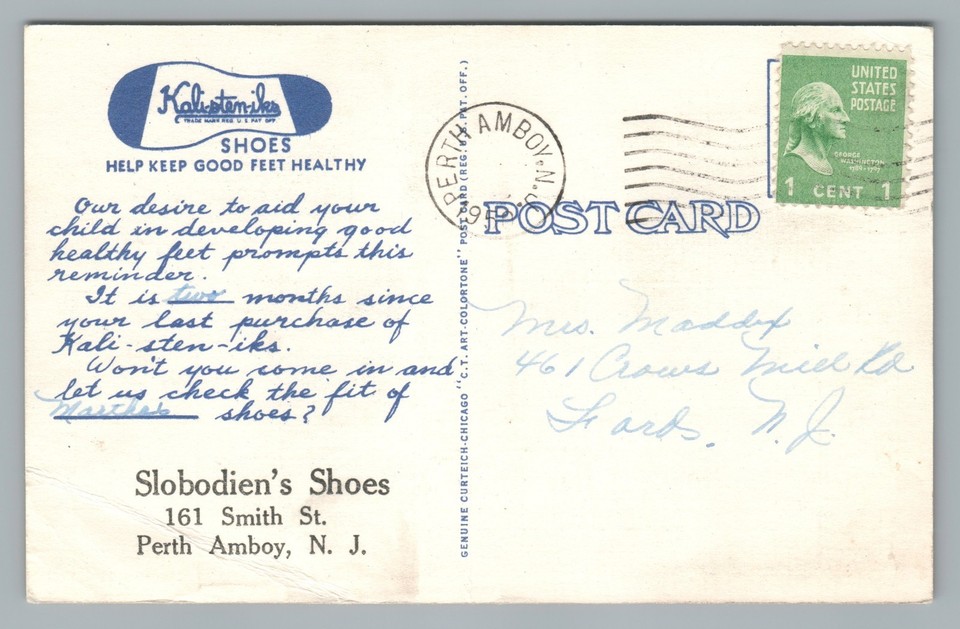 Kali-sten-iks
TRADE MARK REG. U.S. PAT. OFF.
SHOES
HELP KEEP GOOD FEET HEALTHY
Our desire to aid your
child in developing good
healthy feet prompts this
reminder.
It is two months since
your last purchase of
Kali-sten-iks.
Won't you come in and
let us check the fit of
Martha's shoes?
Slobodien's Shoes
161 Smith St.
Perth Amboy, N. J.
GENUINE CURTEICH-CHICAGO "C.T. ART-COLORTONE" POST CARD (REG. U.S. PAT. OFF.)
PERTH AMBOY. N.J.
POST CARD
UNITED
STATES
POSTAGE
GEORGE
WASHINGTON
1789-1797
1 CENT 1
Mrs. Maddex
461 Crows Mill Rd
Fords, N.J.